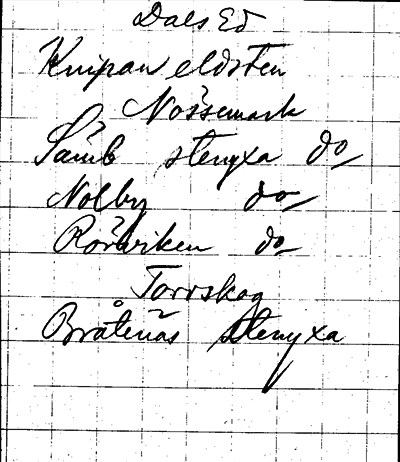 Dals Ed
Knipan eldsten
Nössemark
Sämb stenyxa do
Nolby do
Rörviken do
Torrskog
Bråtenäs stenyxa